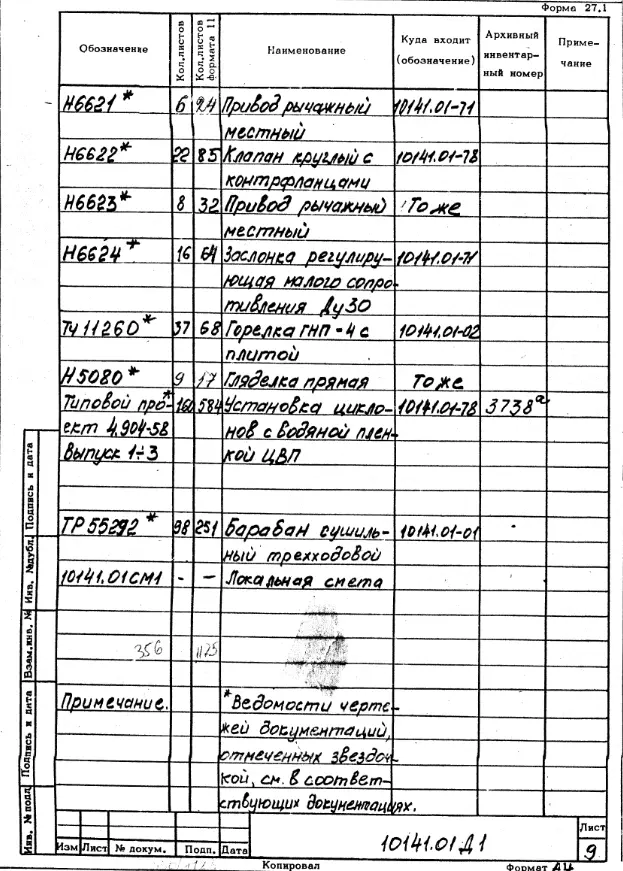 Форма 27.1
Обозначение | Кол.листов | Кол.листов формата 11 | Наименование | Куда входит (обозначение) | Архивный инвентарный номер | Примечание
Н6621* | 6 | 24 | Привод рычажный | 10141.01-71
местный
Н6622* | 22 | 85 | Клапан круглый с | 10141.01-78
контрфланцами
Н6623* | 8 | 32 | Привод рычажный | То же
местный
Н6624* | 16 | 64 | Заслонка регулиру- | 10141.01-71
ющая малого сопро-
тивления Ду30
Тч11260* | 37 | 68 | Горелка ГНП-4 с | 10141.01-02
плитой
Н5080* | 9 | 17 | Гляделка прямая | То же
Типовой про-* | 160 | 584 | Установка цикло- | 10141.01-78 | 3738а
ект 4.904-58 | нов с водяной плен-
Выпуск 1÷3 | кой ЦВП
ТР55292* | 98 | 251 | Барабан сушиль- | 10141.01-01
ный трехходовой
10141.01СМ1 | - | - | Локальная смета
356 | 1175
Примечание. | *Ведомости черте-
жей документаций,
отмеченных звездоч-
кой, см. в соответ-
ствующих документациях.
Инв. № подл | Подпись и дата | Взам.инв. № | Инв. № дубл. | Подпись и дата
10141.01Д1
Лист
9
Изм | Лист | № докум. | Подп. | Дата
Копировал
Формат А4